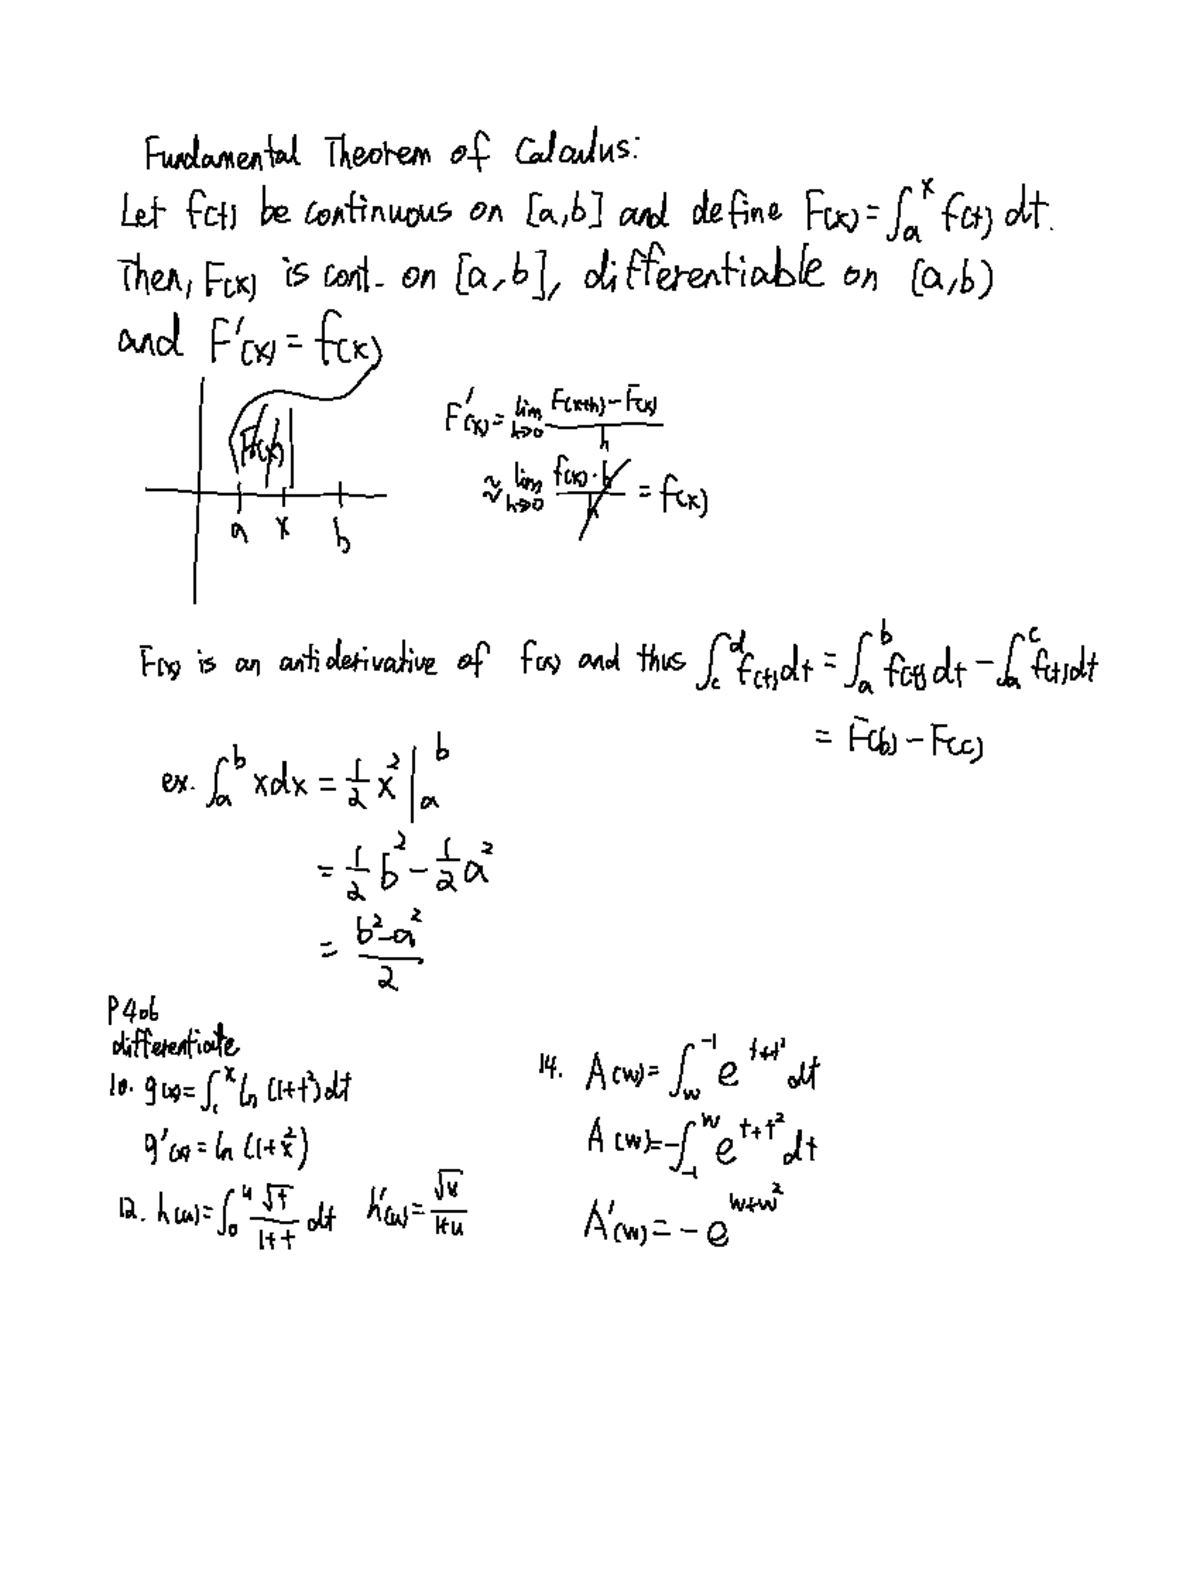 Fundamental Theorem of Calculus:
Let f(t) be continuous on [a,b] and define F(x) = ∫_a^x f(t) dt.
Then, F(x) is cont. on [a,b], differentiable on (a,b)
and F'(x) = f(x)
F(x)
a x b
F'(x) = lim_{h→0} (F(x+h) - F(x))/h
≈ lim_{h→0} (f(x)·h)/h = f(x)
F(x) is an antiderivative of f(x) and thus ∫_c^d f(t)dt = ∫_a^b f(t)dt - ∫_a^c f(t)dt
= F(b) - F(c)
ex. ∫_a^b xdx = 1/2 x^2 |_a^b
= 1/2 b^2 - 1/2 a^2
= (b^2 - a^2)/2
P406
differentiate
10. g(x) = ∫_1^x ln(1+t^2)dt
g'(x) = ln(1+x^2)
12. h(u) = ∫_0^u √t/(1+t) dt h'(u) = √u/(1+u)
14. A(w) = ∫_w^{-1} e^{t+t^2} dt
A(w) = -∫_{-1}^w e^{t+t^2} dt
A'(w) = -e^{w+w^2}